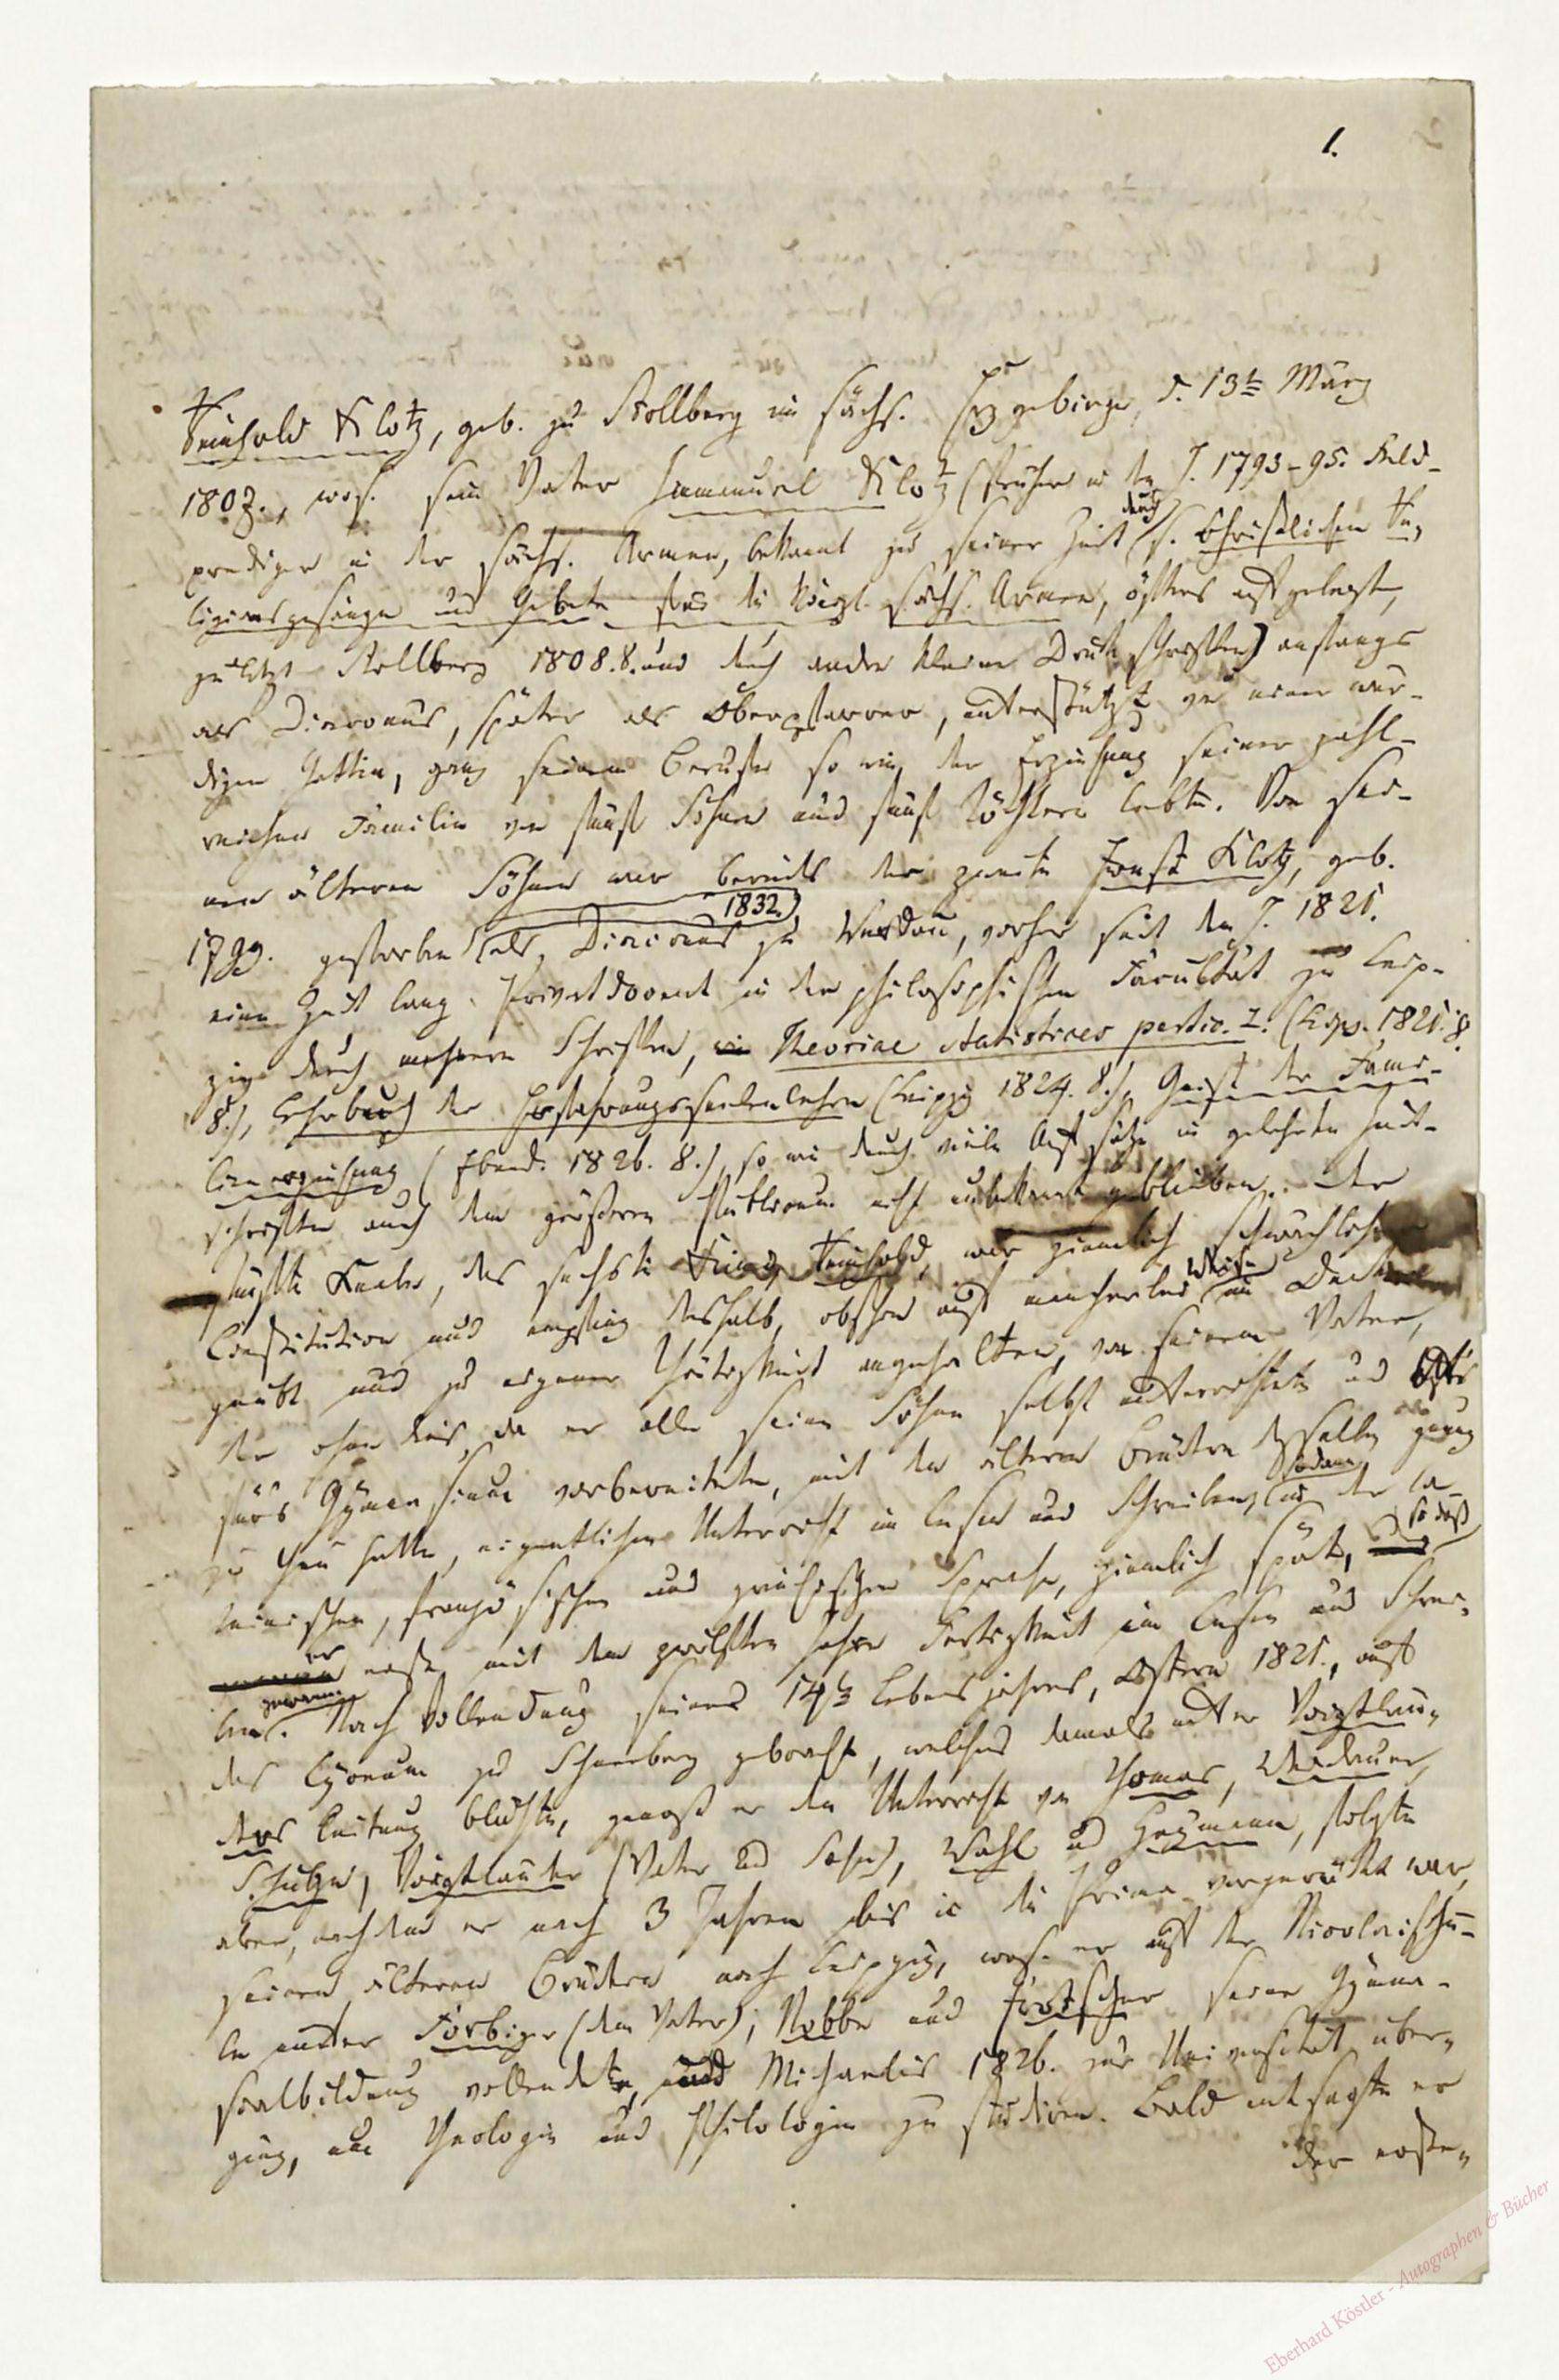 1.
Reinhold Klotz, geb. zu Stollberg im sächs. Erzgebirge, d. 13ten März
1807., wo s. sein Vater Immanuel Klotz (früher in den J. 1793-95. Feld-
prediger in der sächs. Armee, bekannt zu seiner Zeit durch s. Christlichen Re-
ligionsgesänge und Gebete für die königl. sächs. Armee, öfters aufgelegt,
zuletzt Stollberg 1808. 8. und durch andere kleine Druckschriften) anfangs
als Diaconus, später als Oberpfarrer, unterstützt von einer wür-
digen Gattin, ganz seinem Berufe so wie der Erziehung seiner zahl-
reichen Familie von fünf Söhnen und fünf Töchtern lebte. Von sei-
nen älteren Söhnen war bereits der zweite Ernst Klotz, geb.
1799. gestorben als Diaconus 1832.) zu Werdau, vorher seit dem J. 1821.
eine Zeit lang Privatdocent in der philosophischen Facultät zu Leip-
zig durch mehrere Schriften, Theoriae statistices partic. I. (Lips. 1821. 8.
8.), Lehrbuch der Erfahrungsseelenlehre (Leipzig 1824. 8.), Geist der Fami-
lienerziehung (Ebend. 1826. 8.), so wie durch viele Aufsätze in gelehrten Zeit-
schriften auch dem größeren Publicum nicht unbekannt geblieben. Der
fünfte Knabe, das sechste Kind, Reinhold, war ziemlich schwächlicher
Constitution und empfing deshalb, obschon auf mancherlei Weise im Denken
geübt und zu eigener Thätigkeit angehalten, von seinem Vater,
der ohne dies, da er alle seine Söhne selbst unterrichtete und
fürs Gymnasium vorbereitete, mit den älteren Brüdern desselben genug
zu thun hatte, eigentlichen Unterricht im Lesen und Schreiben, sodann in der la-
teinischen, französischen und griechischen Sprache, ziemlich spät, so daß
er erst mit dem zwölften Jahre Fertigkeit im Lesen und Schrei-
ben gewann. Nach Vollendung seines 14ten Lebensjahres, Ostern 1821., auf
das Lyceum zu Schneeberg gebracht, welches damals unter Voigtlän-
ders Leitung blühte, genoß er den Unterricht von Thomas,
Schulze, Voigtländer (Vater und Sohn), Wahl und Heymann, folgte
aber, nachdem er nach 3 Jahren bis in die Prima vorgerückt war,
seinen älteren Brüdern nach Leipzig, wo s. er auf der Nicolaischu-
le unter Forbiger (dem Vater), Nobbe und Frotscher seine Gymna-
sialbildung vollendete, und Michaelis 1826. zur Universität über-
ging, um Theologie und Philologie zu studiren. Bald entsagte er
der erste-
Eberhard Köstler - Autographen & Bücher